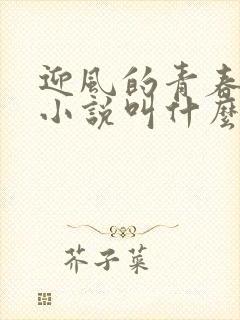 迎風的青春
小說叫什麼
芥子菜